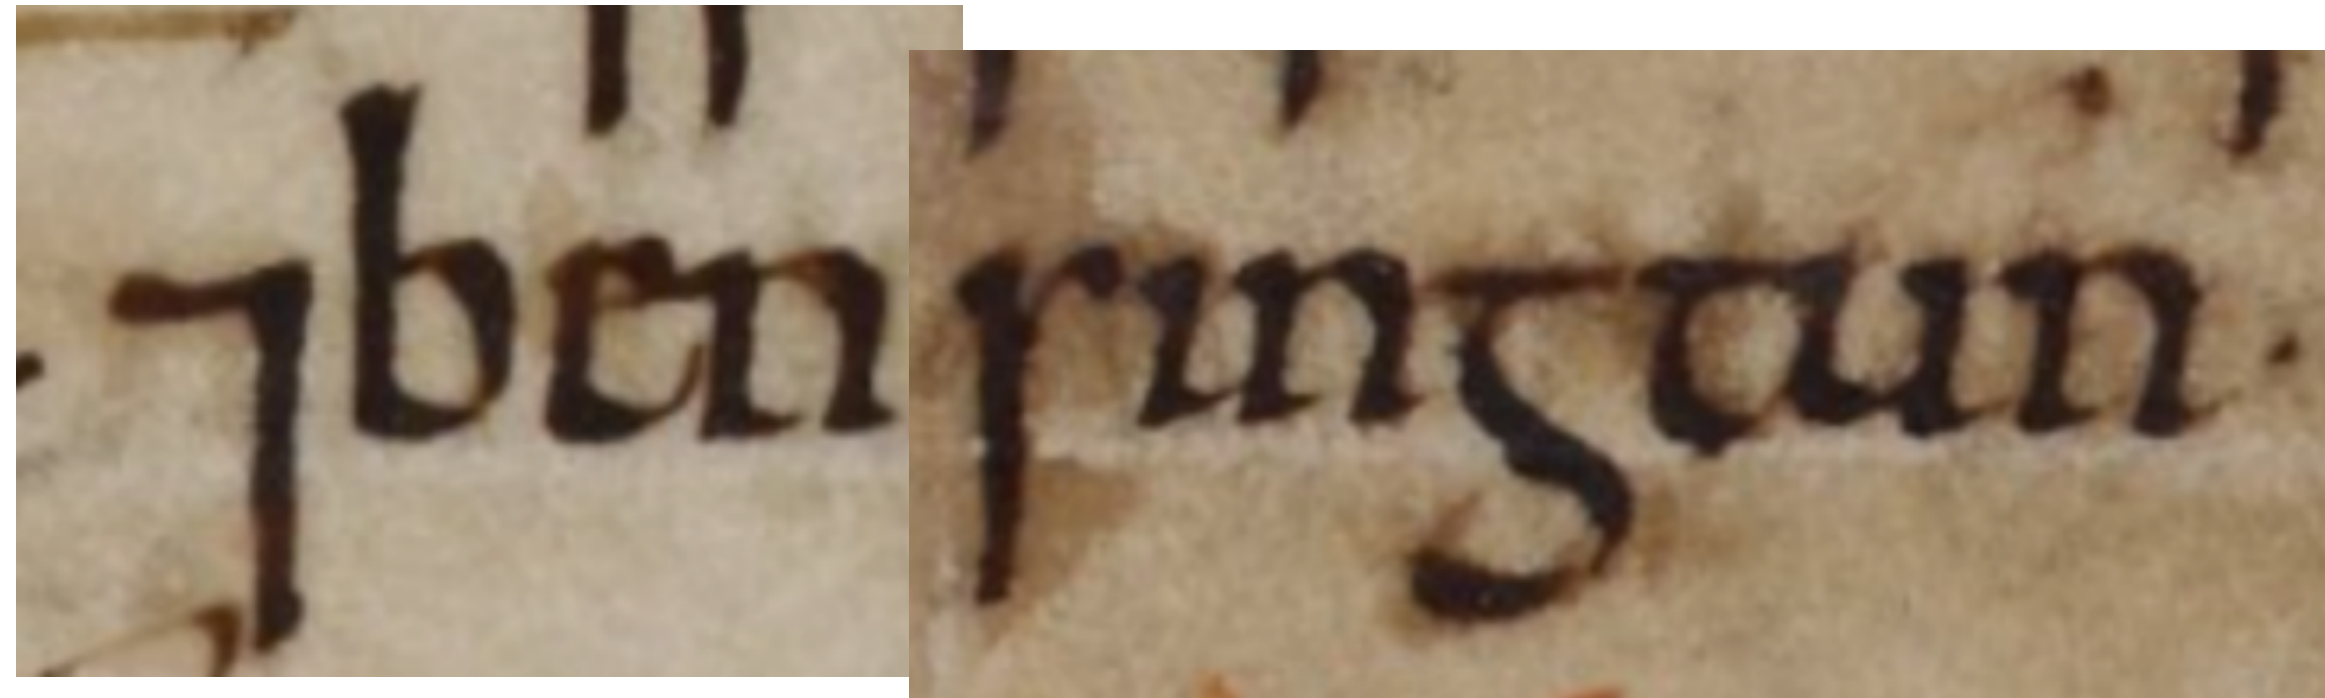 ⁊ bensingtun ·